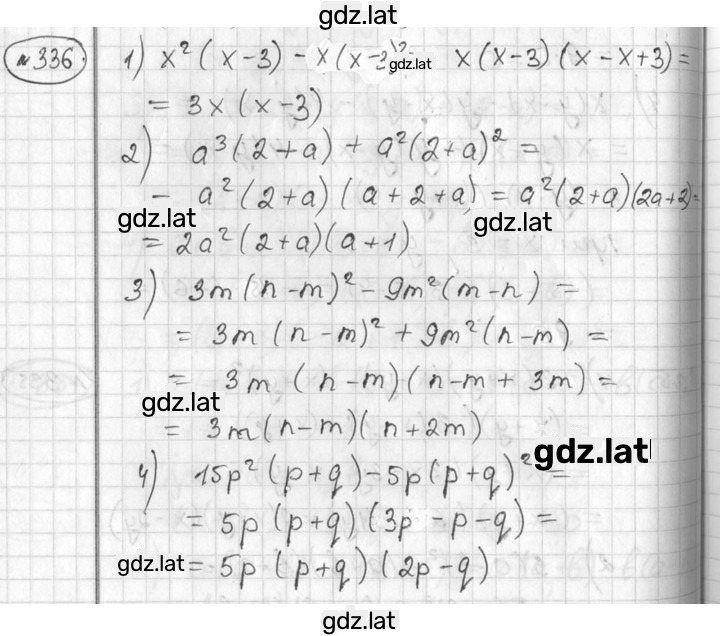 gdz.lat
№336 1) x² (x-3) - x(x-3)² gdz.lat x(x-3)(x-x+3)=
= 3x(x-3)
2) a³(2+a) + a²(2+a)² =
- a²(2+a)(a+2+a) = a²(2+a)(2a+2)=
gdz.lat gdz.lat
= 2a²(2+a)(a+1)
3) 3m(n-m)² - 9m²(m-n) =
= 3m (n-m)² + 9m²(n-m) =
= 3m (n-m)(n-m+3m) =
gdz.lat
= 3m(n-m)(n+2m)
gdz.lat
4) 15p²(p+q)-5p(p+q)² =
= 5p(p+q)(3p-p-q) =
gdz.lat = 5p(p+q)(2p-q)
gdz.lat